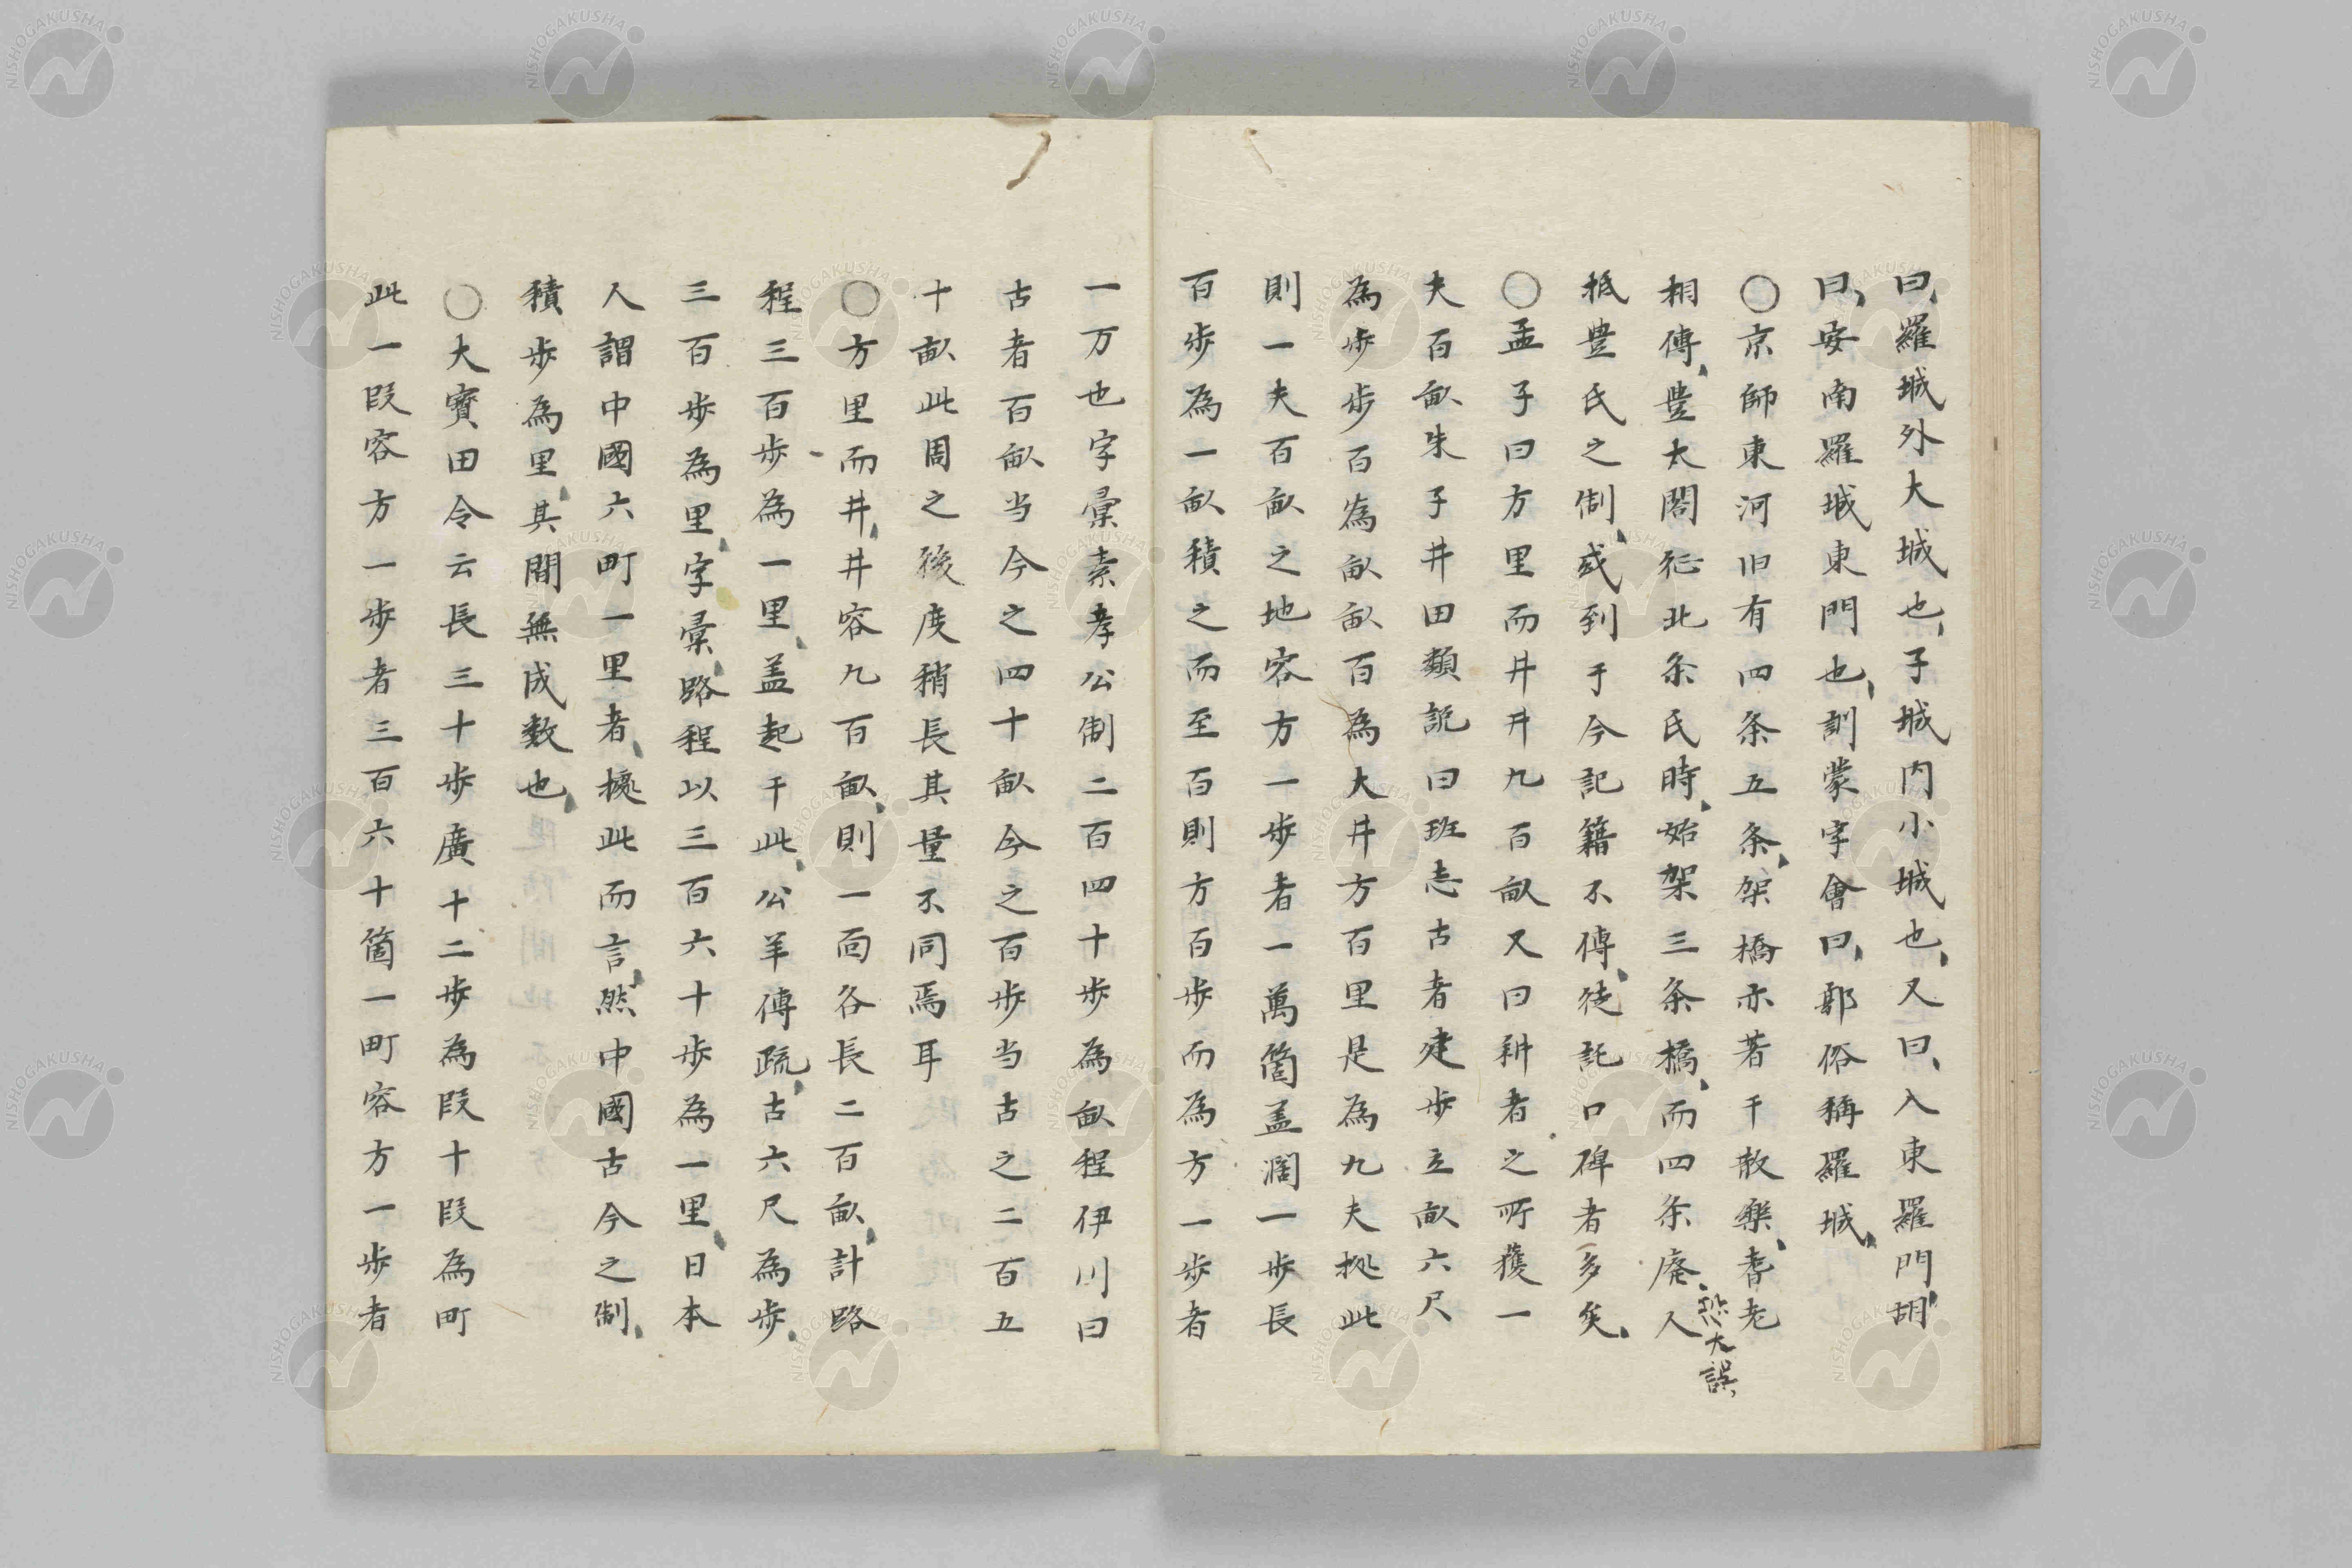 曰、羅城外大城也、子城内小城也、又曰、入東羅門、胡
曰、安南羅城東門也、訓蒙字會曰、郭俗稱羅城、
○京師東河旧有四条五条、架橋亦著于散樂、耆老
相傳、豊太閤征北条氏時、始架三条橋、而四条廃、人
恐大誤、
抵豊氏之制、或到于今記籍不傳、徒託口碑者多矣、
○孟子曰方里而井井九百畝又曰耕者之所獲一
夫百畝朱子井田類説曰班志古者建歩立畝六尺
為歩歩百為畝畝百為夫井方百里是為九夫拠此
則一夫百畝之地容方一歩者一萬箇盖濶一歩長
百歩為一畝積之而至百則方百歩而為方一歩者
一万也字彙素孝公制二百四十歩為畝程伊川曰
古者百畝当今之四十畝今之百歩当古之二百五
十畝此周之後度稍長其量不同焉耳
○方里而井、井容九百畝、則一面各長二百畝、計路
程三百歩為一里、盖起于此、公羊傳疏、古六尺為歩、
三百歩為里、字彙、路程以三百六十歩為一里、日本
人謂中國六町一里者、據此而言、然中國古今之制、
積歩為里、其間無成数也、
○大寳田令云長三十歩廣十二歩為段十段為町
此一段容方一歩者三百六十箇一町容方一歩者
NISHOGAKUSHA